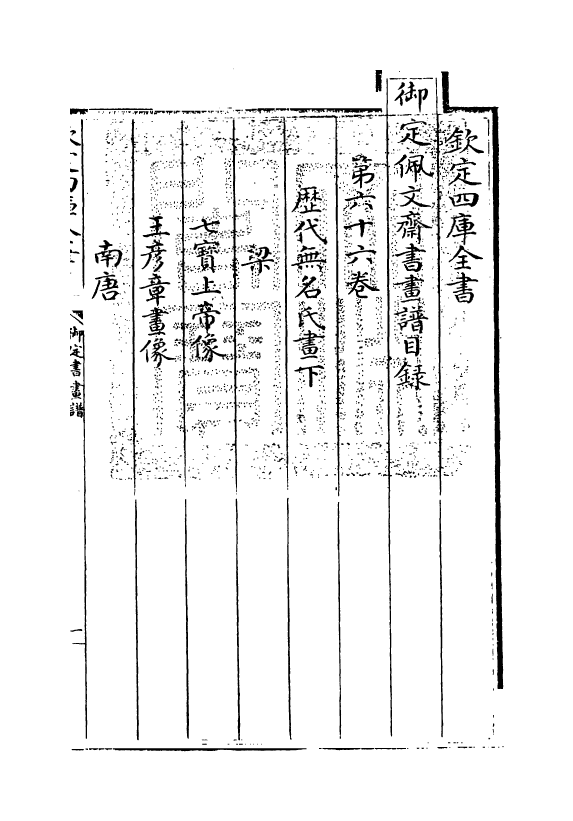 欽定四庫全書
御定佩文齋書畫譜目録
第六十六卷
歴代無名氏畫下
梁
七寶上帝像
王彦章畫像
南唐
御定書畫譜
一